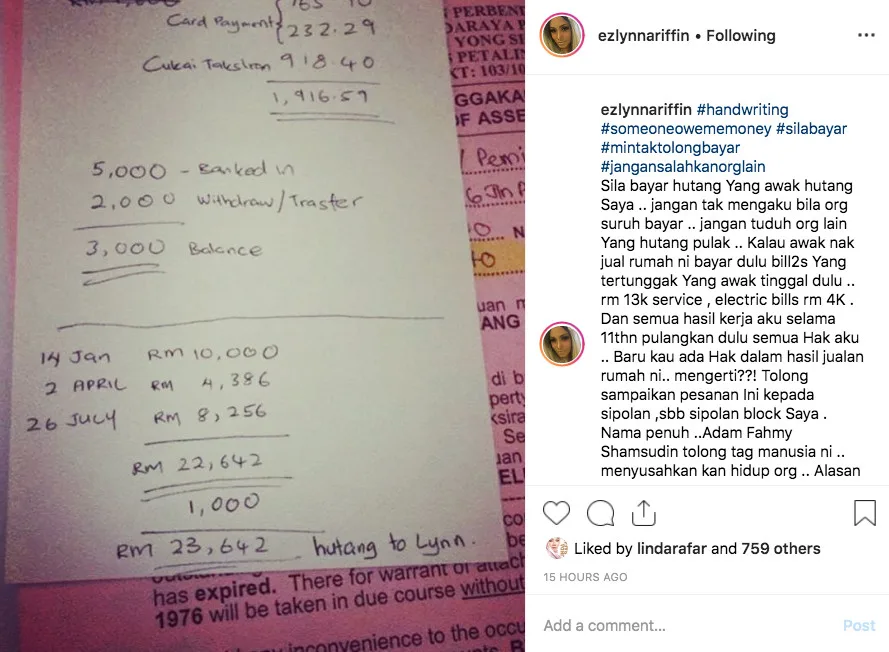 165 10
Card Payment { 232.29
Cukai Taksiran 918.40
1,916.59
5,000 - Banked in
2,000 Withdraw/Traster
3,000 Balance
14 Jan RM 10,000
2 APRIL RM 4,386
26 JULY RM 8,256
RM 22,642
1,000
RM 23,642 hutang to Lynn.
PERBEN
DARAYA P
YONG S
PETALIN
KT: 103/10
GGAKA
OF ASSE
di b
ANG
has expired. There for warrant of attach
1976 will be taken in due course without
inconvenience to the occu
ezlynnariffin • Following
ezlynnariffin #handwriting
#someoneowememoney #silabayar
#mintaktolongbayar
#jangansalahkanorglain
Sila bayar hutang Yang awak hutang
Saya .. jangan tak mengaku bila org
suruh bayar .. jangan tuduh org lain
Yang hutang pulak .. Kalau awak nak
jual rumah ni bayar dulu bill2s Yang
tertunggak Yang awak tinggal dulu ..
rm 13k service , electric bills rm 4K .
Dan semua hasil kerja aku selama
11thn pulangkan dulu semua Hak aku
.. Baru kau ada Hak dalam hasil jualan
rumah ni.. mengerti??! Tolong
sampaikan pesanan Ini kepada
sipolan ,sbb sipolan block Saya .
Nama penuh ..Adam Fahmy
Shamsudin tolong tag manusia ni ..
menyusahkan kan hidup org .. Alasan
Liked by lindarafar and 759 others
15 HOURS AGO
Add a comment... Post